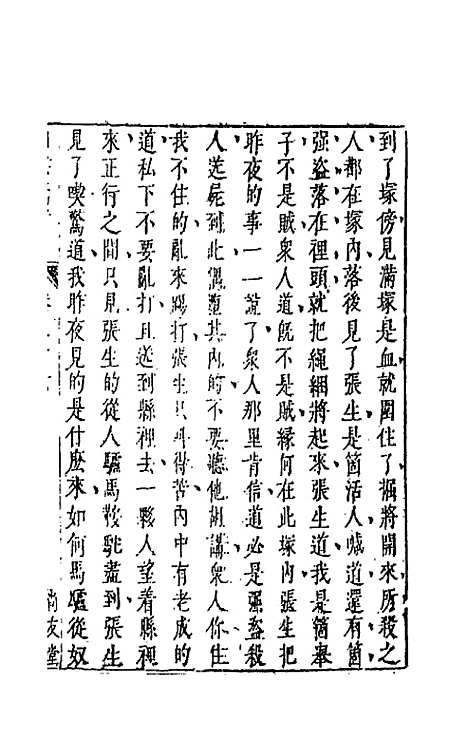 到了塚傍見滿塚是血就圍住了掘將開來所殺之
人都在塚內落後見了張生是箇活人喊道還有箇
强盜落在裡頭就把繩綑將起來張生道我是箇舉
子不是賊衆人道既不是賊緣何在此塚內張生把
昨夜的事一一說了衆人那里肯信道必是强盜殺
人送屍到此偶墮其內的不要聽他胡講衆人你住
我不住的亂來踢打張生只叫得苦內中有老成的
道私下不要亂打且送到縣裡去一夥人望着縣裡
來正行之間只見張生的從人驢馬鞍駝盡到張生
見了喫驚道我昨夜見的是什麽來如何馬驢從奴
尚友堂